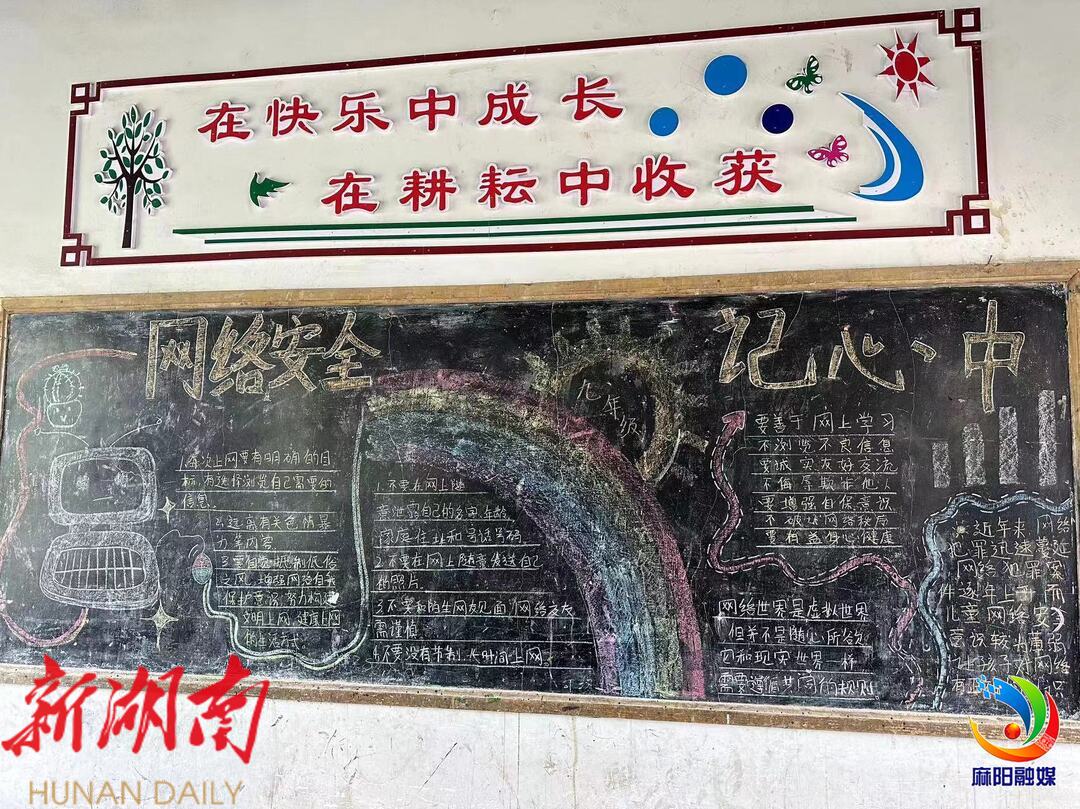 在快乐中成长
在耕耘中收获
网络安全
记心中
九年级
1.每次上网要有明确的目
标,有选择浏览自己需要的
信息
2.远离有关色情暴
力等内容
3.要自觉抵制低俗
之风,增强网络自我
保护意识,努力构建
文明上网、健康上网
的生活方式
1.不要在网上随
意泄露自己的名字,年龄,
家庭住址和电话号码
2.不要在网上随意发送自己
的照片
3.不要和陌生网友见面 网络交友
需谨慎
4.不要没有节制 长时间上网
要善于网上学习
不浏览不良信息
要诚实友好交流
不侮辱欺诈他人
要增强自保意识
不破坏网络秩序
要有益身心健康
网络世界是虚拟世界
但并不是随心所欲
它和现实世界一样
需要遵循共同的规则
近年来网络
犯罪迅速蔓延
网络犯罪案
件逐年上升而
儿童网络安
意识较为薄弱
让孩子对网络
有正
新湖南
HUNAN DAILY
麻阳融媒